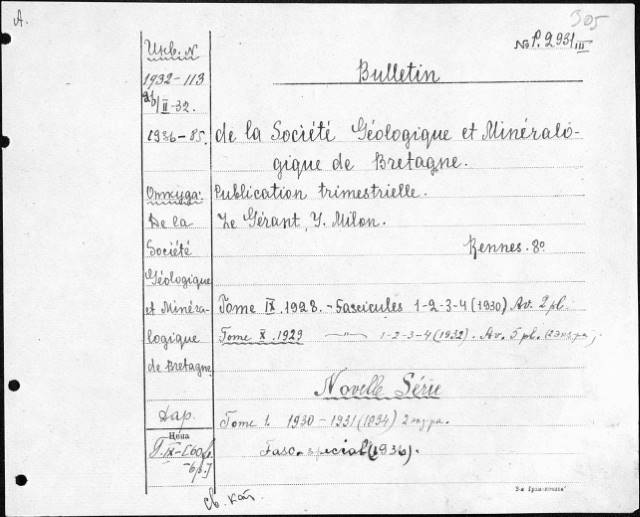 A.
305
№ P.2931/III
Инв. N
1932-113
II-32.
1936-85.
Откуда:
De la
Société
Géologique
et Minéra-
logique
de Bretagne
Дар.
Цена
Bulletin
de la Société Géologique et Minéralo-
gique de Bretagne.
Publication trimestrielle.
Le Gérant, Y. Milon.
Rennes. 8o
Tome IX. 1928. - Fascicules 1-2-3-4 (1930). Av. 2 pl.
Tome X. 1929 —"— 1-2-3-4 (1932). Av. 5 pl.
Novelle Série
Tome 1. 1930-1931 (1934)
Fasc. special (1936).
св. кат.